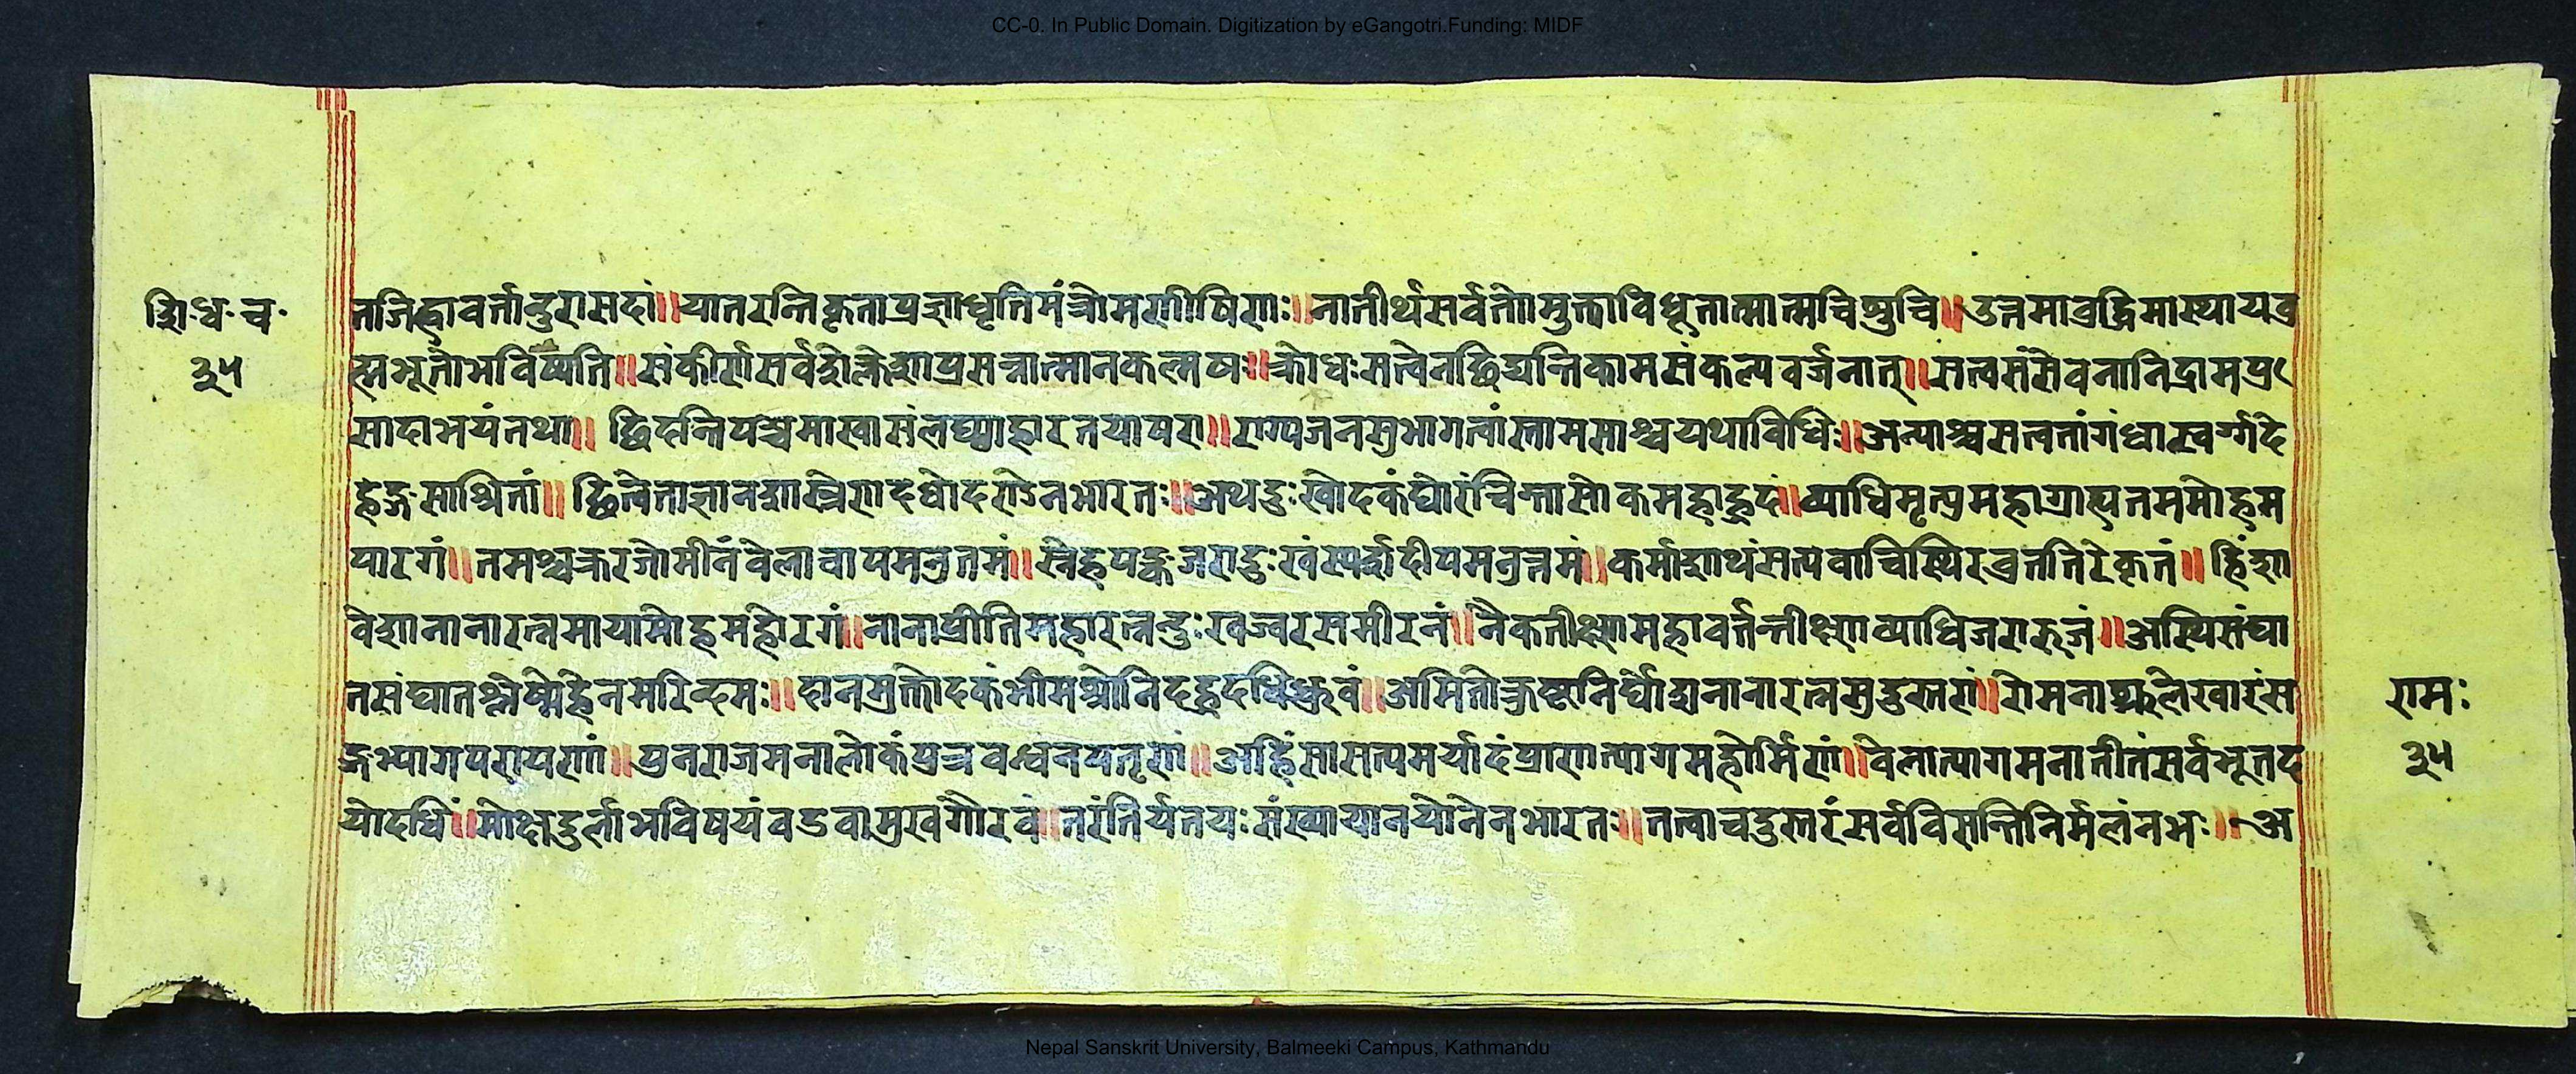 CC-0. In Public Domain. Digitization by eGangotri.Funding: MIDF
शि·ध·च·
३५
तजिह्वावर्त्तान्दुरासदां॥यातरन्तिकृताप्रज्ञाधृतिमंत्रोमणीषिणाः॥नातीर्थसर्वतोोमुक्ताविधूतात्मात्मचिश्रुचि॥उत्तमाव्रद्धिमास्थायव्र
ह्मभूतोभविष्यति॥संकीर्णसर्वशोक्लेशाप्रसन्नात्मानकल्मषः॥क्रोधःसत्वेनछिद्यन्तिकामसंकल्पवर्जनात्॥सत्वसंसेवनानिद्रामप्र
सादाभयंतथा॥ छिदन्तिपञ्चमाखासंलघ्वाहारतयाषरा॥राग्यजनसुभागत्वांस्तामसाश्चयथाविधिः॥अन्याश्चसत्वतांगंधास्वर्ग्गदे
हेङ्गसाश्रितां॥ छित्वेताज्ञानशास्त्रेणादधोदरोऽनभारतः॥अथदुःखोदकंघोरंचिन्तासोकमहाह्रदं॥व्याधिमृत्युमहाग्राह्यतममोहम
पारगं॥तमश्चक्ररजोमीनंवेलावापमनुतमं॥स्नेहपङ्कजरादुःखंस्पर्शदीपमनुत्तमं॥कर्माशाथंसत्यवाचिस्थिरव्रततिरेकृतं॥हिंशा
वेशानानारत्नमायामोहमहोरगं॥नानाप्रीतिमहारत्नन्दुःखज्वरसमीरनं॥नैकतीक्ष्णामहावर्त्तन्तीक्ष्णाव्याधिजरारुजं॥अस्थिसंघा
तसंघातश्लेष्मेहेनमरिन्दमः॥दानमुक्तोदकंभीमश्रोनिदह्रदधिध्रुवं॥अमितोक्रुष्टनिर्घोद्यनानारत्नसुदुस्तरां॥रोमनाक्रुलेखारंस
ङ्गभ्यागपरायणां॥पुनराजमनालोकंपुत्रवन्ध्वनपतृणां॥अहिंसासत्यमर्यादंप्राणात्यागमहोर्मिणां॥वेलात्यागमनातीतंसर्वभूतद
योदधिं॥मोक्षदुर्लाभविषयंवडवामुखंगौरवं॥तरंतिर्यतयःसंख्यायानयोनेनभारतः॥तत्वाचदुस्तरंसर्वविसन्तिनिर्मलंनभः॥अ
रामः
३५
Nepal Sanskrit University, Balmeeki Campus, Kathmandu